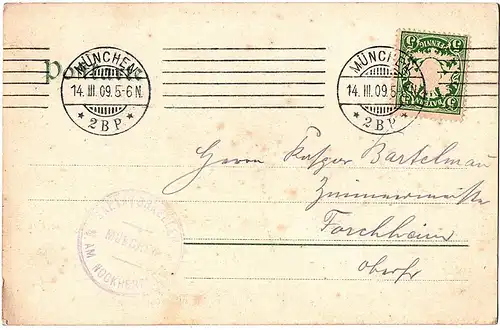 Postkarte
MÜNCHEN
14. III. 09. 5-6 N.
* 2 B P *
MÜNCHEN
14. III. 09. 5
* 2 B P *
5 PFENNIG 5
BAYERN
Herrn Kaspar Bartelman
Zimmermeister
Forchheim
Oberfr
MÜNCHEN
AM NOCKHER